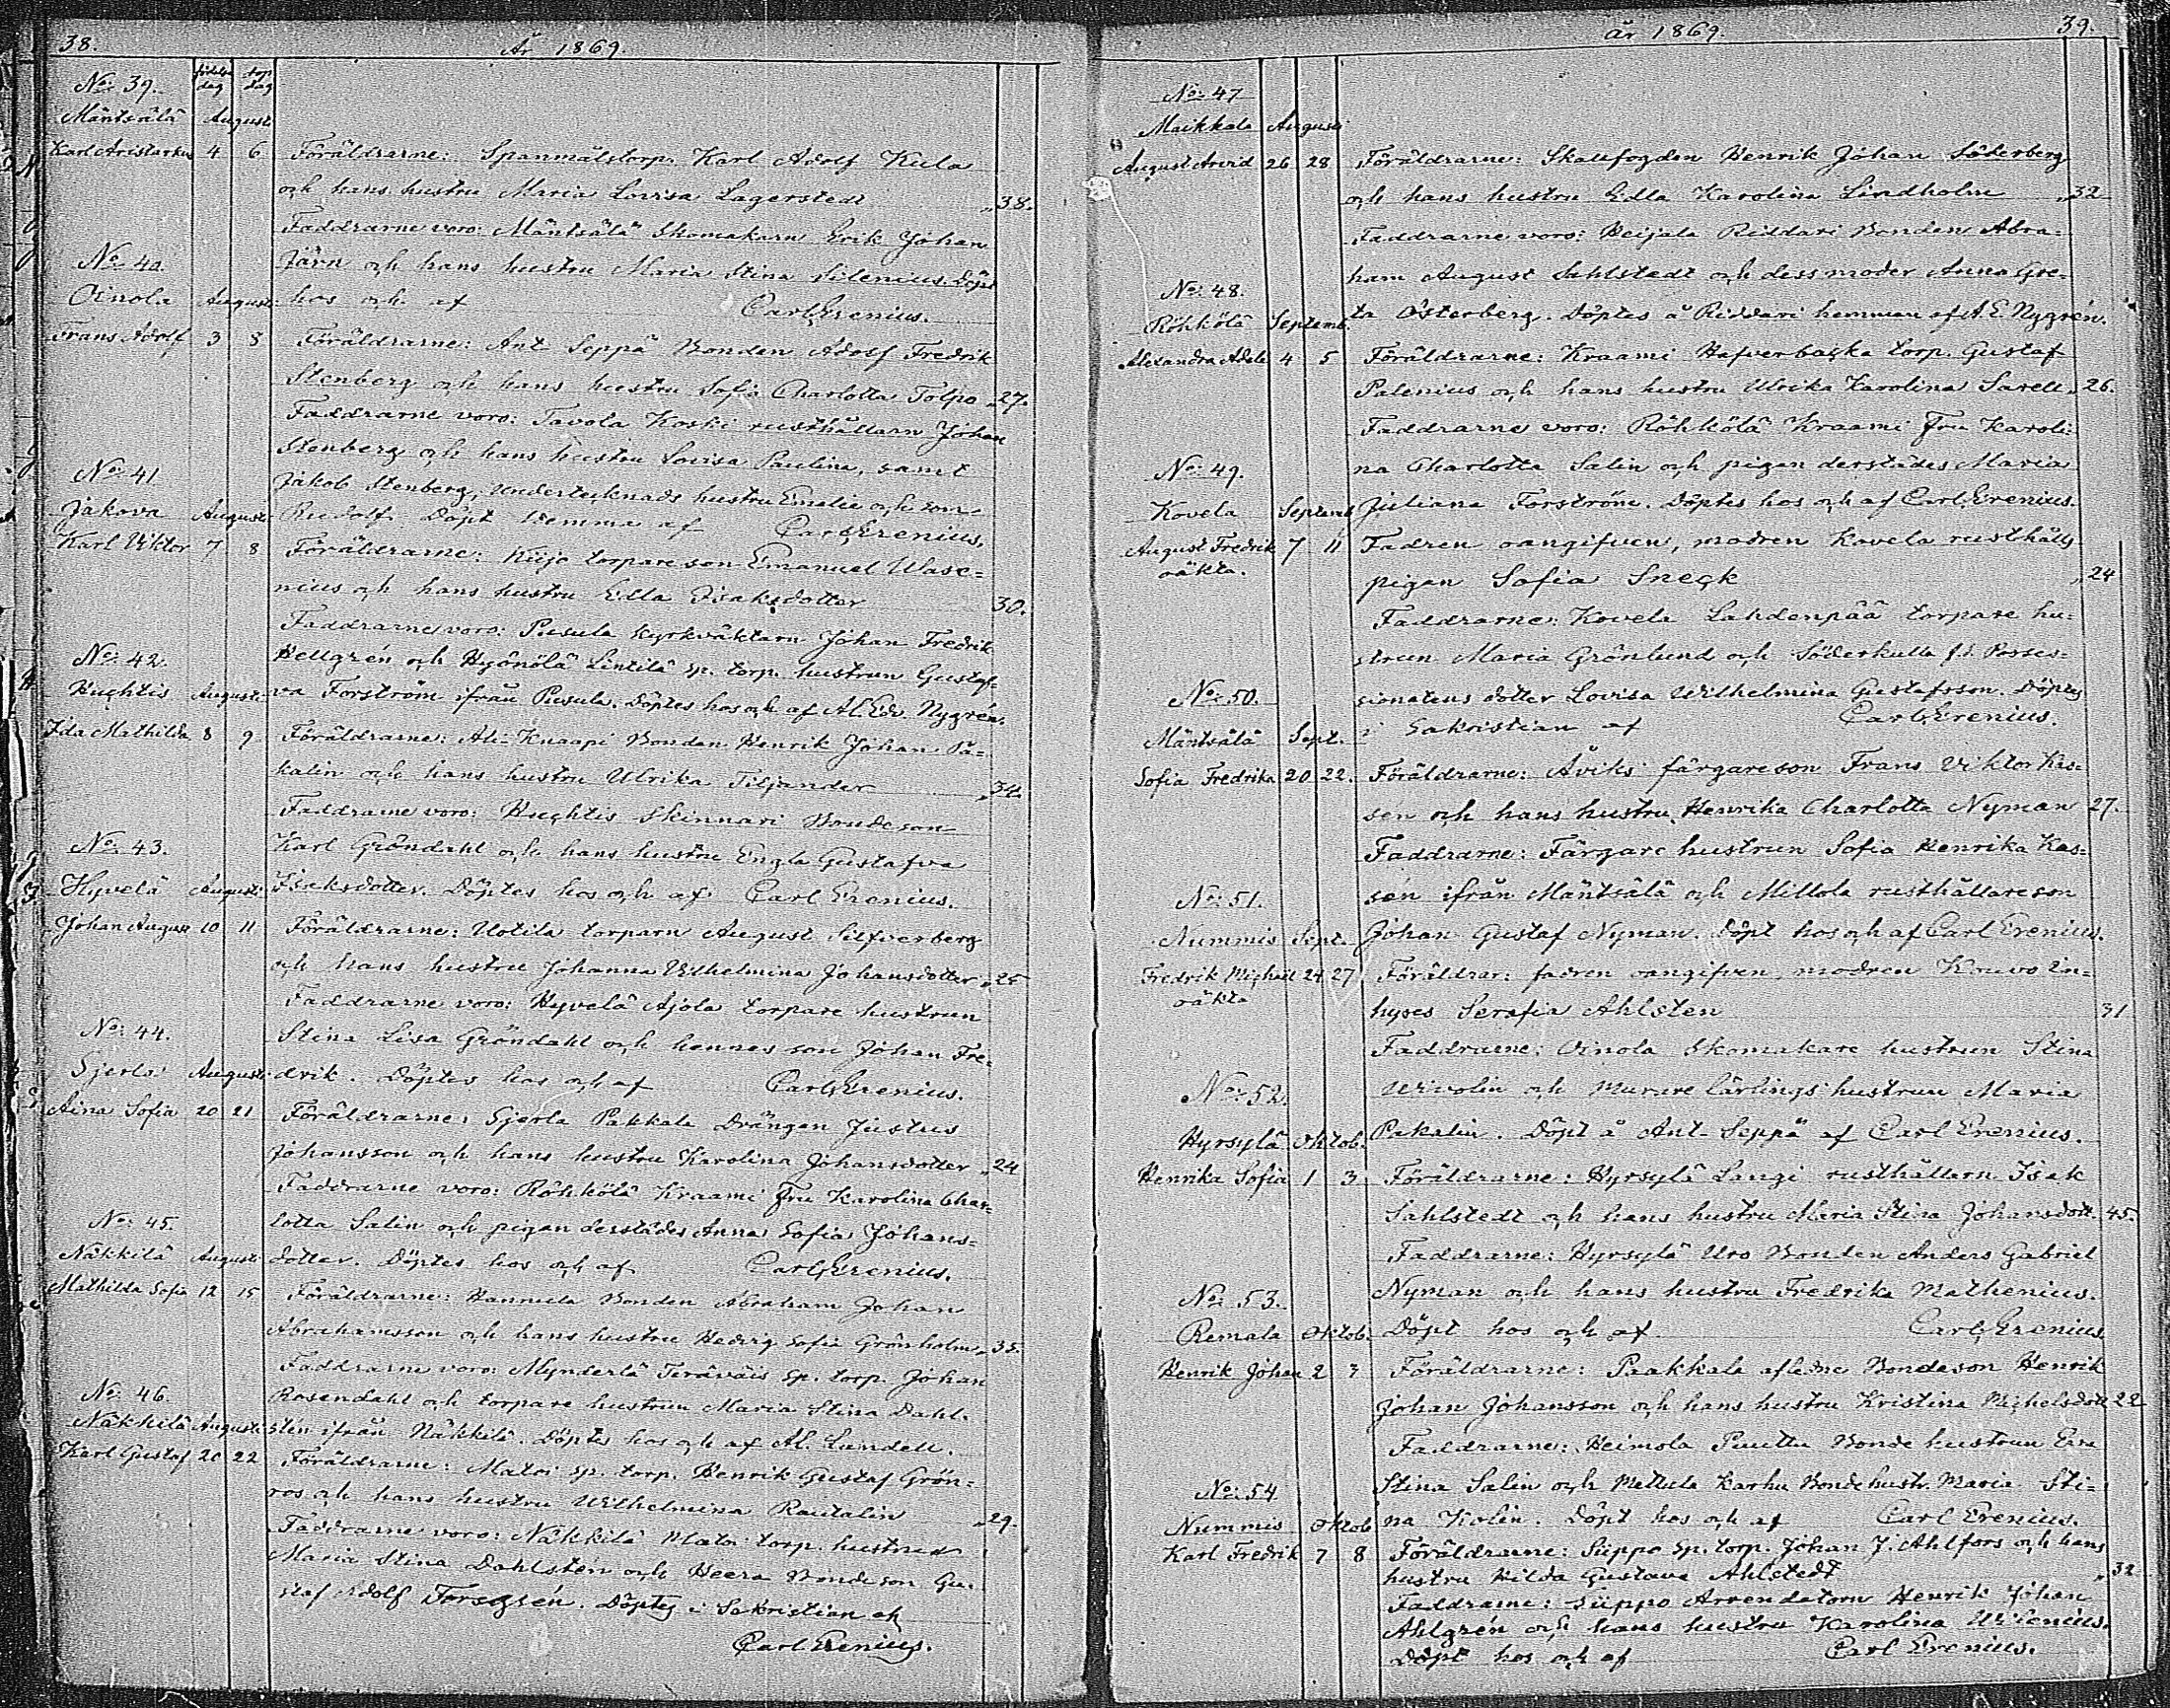 38.
År 1869.
födelse dag
dop dag
No: 39.
Mäntsälä Augusti
Karl Aristarkus 4 6 Föräldrarne: Spanmålstorp. Karl Adolf Kula
och hans hustru Maria Lovisa Lagerstedt „38.
Faddrarne voro: Mäntsälä Skomakarn Erik Johan
Järn och hans hustru Maria Stina Silenius. Döpt
hos och af Carl Grenius.
No: 40.
Oinola Augusti
Frans Adolf 3 8 Föräldrarne: Ant Seppä Bonden Adolf Fredrik
Stenberg och hans hustru Sofia Charlotta Tolpo „27.
Faddrarne voro: Tavola Koski rusthållarn Johan
Stenberg och hans hustru Lovisa Paulina, samt
Jakob Stenberg, Undertecknads hustru Emelie och son
Rudolf. Döpt hemma af Carl Grenius.
No: 41
Jakova Augusti
Karl Viktor 7 8 Föräldrarne: torpareson Emanuel Wase=
nius och hans hustru Edla Isaksdotter 30.
Faddrarne voro: Pusula Kyrkväktarn Johan Fredrik
Hellgrén och Hyönölä Lintilä sp. torp. hustrun Gustaf=
va Forström ifrån Pusula. Döptes hos och af Al. Edv. Nygrén.
No: 42.
Huhtis Augusti
Ida Mathilda 8 9 Föräldrarne: Ali-Knaapi Bonden Henrik Johan Pa=
kalin och hans hustru Ulrika Tiljander „34.
Faddrarne voro: Huhtis Skinnari Bondeson
Karl Gröndahl och hans hustru Engla Gustafva
Isaksdotter. Döptes hos och af Carl Grenius.
No: 43.
Hyvelä Augusti
Johan August 10 11 Föräldrarne: Uotila torparn August Silfverberg
och hans hustru Johanna Wilhelmina Johansdotter „25
Faddrarne voro: Hyvelä Ajola torpare hustrun
Stina Lisa Gröndahl och hennes son Johan Fre=
drik. Döptes hos och af Carl Grenius.
No: 44.
Gjerla Augusti
Aina Sofia 20 21 Föräldrarne: Gjerla Pakkala Drängen Justus
Johansson och hans hustru Karolina Johansdotter „24
Faddrarne voro: Röhkölä Kraami Fru Karolina Char=
lotta Salin och pigan derstädes Anna Sofia Johans=
dotter. Döptes hos och af Carl Grenius.
No: 45.
Näkkilä Augusti
Mathilda Sofia 12 15 Föräldrarne: Hannula Bonden Abraham Johan
Abrahamsson och hans hustru Hedvig Sofia Grönholm „35.
Faddrarne voro: Mynderlä Teräväis sp. torp. Johan
Rosendahl och torpare hustrun Maria Stina Dahl-
stén ifrån Näkkilä. Döptes hos och af Al. Lundell.
No: 46.
Näkkilä Augusti
Karl Gustaf 20 22 Föräldrarne: Matoi sp. torp. Henrik Gustaf Grön=
ros och hans hustru Wilhelmina Rautalin „29.
Faddrarne voro: Näkkilä Matoi torp. hustrun
Maria Stina Dahlstén och Heera Bondeson Gu-
staf Adolf Forssén. Döptes i Sakristian af
Carl Grenius.
39.
År 1869.
No: 47
Maikkala Augusti
August Arvid 26 28 Föräldrarne: Skallfogden Henrik Johan Söderberg
och hans hustru Edla Karolina Lindholm „32
Faddrarne voro: Heijala Riddari Bonden Abra=
ham August Sahlstedt och dess moder Anna Gre-
ta Österberg. Döptes å Riddari hemman af A. E. Nygrén.
No: 48.
Röhkölä Septemb.
Alexandra Adele 4 5 Föräldrarne: Kraami Hafverbacka torp. Gustaf
Palenius och hans hustru Ulrika Karolina Sarell „26.
Faddrarne voro: Röhkölä Kraami Fru Karoli=
na Charlotta Salin och pigan derstädes Maria
Juliana Forström. Döptes hos och af Carl Grenius.
No: 49.
Kovela Septemb
August Fredrik 7 11 Fadren oangifven, modren Kovela rusthålls
oäkta.
pigan Sofia Sneck „24
Faddrarne: Kovela Lahdenpää torpare hu=
strun Maria Grönlund och Söderkulla f.d. Posses=
sionatens dotter Lovisa Wilhelmina Gustafsson. Döptes
i Sakristian af Carl Grenius.
No: 50.
Mäntsälä Sept.
Sofia Fredrika 20 22. Föräldrarne: Åviks färgareson Frans Viktor Kas=
sén och hans hustru Henrika Charlotta Nyman 27.
Faddrarne: Färgare hustrun Sofia Henrika Kas=
sén ifrån Mäntsälä och Millola rusthållareson
Johan Gustaf Nyman. Döpt hos och af Carl Grenius.
No: 51.
Nummis Sept.
Fredrik Michael 24 27 Föräldrar: fadren oangifven, modren Kouvo In=
oäkta
hyses Serafia Ahlsten 31
Faddrarne: Oinola Skomakare hustrun Stina
Wivolin och Murare lärlings hustrun Maria
Pakalin. Döpt å Ant-Seppä af Carl Grenius.
No: 52.
Hyrsylä Oktob.
Henrika Sofia 1 3 Föräldrarne: Hyrsylä Langi rusthållarn Isak
Sahlstedt och hans hustru Maria Stina Johansdott. 45.
Faddrarne: Hyrsylä Uro Bonden Anders Gabriel
Nyman och hans hustru Fredrika Mathenius.
Döpt hos och af Carl Grenius.
No: 53.
Remala Oktob.
Henrik Johan 2 3 Föräldrarne: Paakkala aflidne Bondeson Henrik
Johan Johansson och hans hustru Kristina Michelsdott 22
Faddrarne: Heimola Puuttu Bonde hustrun Eva
Stina Salin och Mettula Karhu Bonde hustr. Maria Sti=
na Kolin. Döpt hos och af Carl Grenius.
No: 54
Nummis Oktob
Karl Fredrik 7 8 Föräldrarne: Siippo sp. torp. Johan J. Ahlfors och hans
hustru Hilda Gustava Ahlstedt „32
Faddrarne: Siippo Arrendatorn Henrik Johan
Ahlgrén och hans hustru Karolina Wilenius.
Döpt hos och af Carl Grenius.